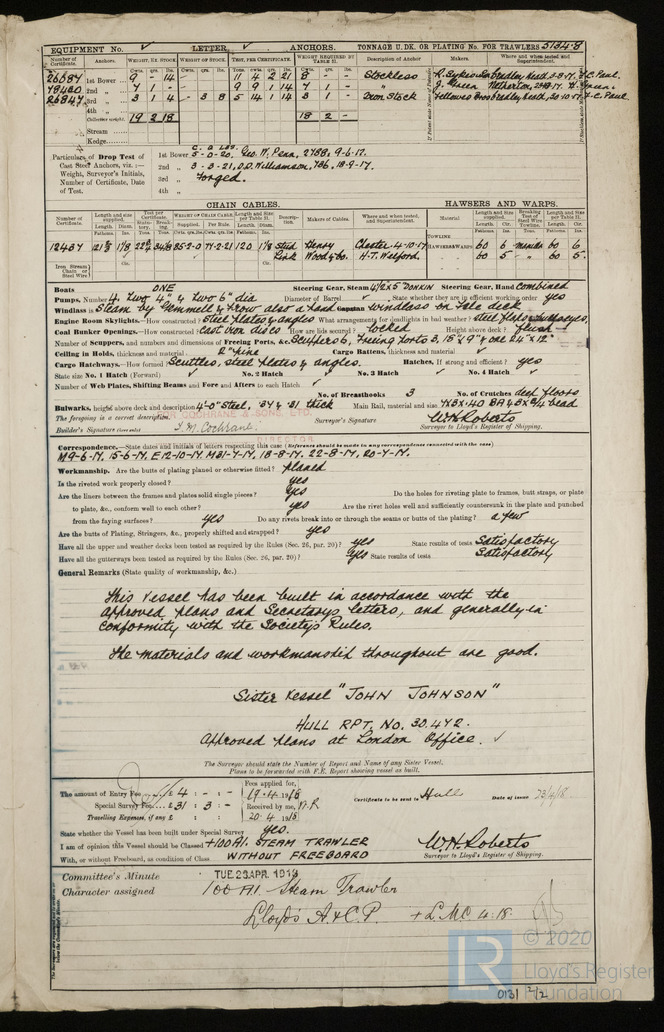 EQUIPMENT No. LETTER ANCHORS. TONNAGE U.DK. OR PLATING No. FOR TRAWLERS 5134.8
Number of Certificate. Anchors. WEIGHT, EX STOCK. WEIGHT OF STOCK. TEST, PER CERTIFICATE. WEIGHT REQUIRED BY TABLE 31. Description of Anchor Makers. Where and when tested and Superintendent.
26687 1st Bower 9 - 14 11 4 2 21 8 - - Stockless
78420 2nd " 7 1 - 9 9 1 14 7 1 - "
26847 3rd " 3 1 4 - 3 8 5 14 1 14 3 1 - Iron Stock
4th "
Collective weight. 19 2 18 18 2 -
Stream
Kedge
Particulars of Drop Test of 1st Bower 5-0-20. Geo. W. Penn, 2788, 9-6-17.
Cast Steel Anchors, viz.:— 2nd " 3-3-21, D.D. Williamson, 786, 18-9-17.
Weight, Surveyor's Initials, 3rd " Forged.
Number of Certificate, Date 4th "
of Test.
CHAIN CABLES. HAWSERS AND WARPS.
Number of Certificate. Length and size supplied. Test per Certificate. WEIGHT OF CHAIN CABLE. Length and Size per Table 31. Description. Makers of Cables. Where and when tested, and Superintendent. Material Length and size supplied. Breaking Test of Hawser. Length and size per Table 31.
TOWLINE
12437 120 1⅛ Stud Henry Chester 4-10-17 HAWSERS & WARPS 60 6 manila 60 6
Link Wood & Co. H.T. Welford. " 60 5 " 60 5
Iron Stream Chain or Steel Wire
Boats ONE Steering Gear, Steam 4½ x 5 DONKIN Steering Gear, Hand combined
Pumps, Number 4. Two 4" & two 6" dia Diameter of Barrel State whether they are in efficient working order yes
Windlass is Steam by Gemmell & Frow also a hand Capstan windlass on Fo'le deck
Engine Room Skylights.—How constructed? Steel plates & angles What arrangements for deadlights in bad weather? steel flaps,
Coal Bunker Openings.—How constructed? cast iron discs How are lids secured? locked Height above deck? flush
Number of Scuppers, and numbers and dimensions of Freeing Ports, &c. Scuppers 6, Freeing ports 3, 15" x 9" & one 24" x 12"
Ceiling in Holds, thickness and material 2" pine Cargo Battens, thickness and material
Cargo Hatchways.—How formed Scuttles, steel plates & angles. Hatches, If strong and efficient? yes
State size No. 1 Hatch (Forward) No. 2 Hatch No. 3 Hatch No. 4 Hatch
Number of Web Plates, Shifting Beams and Fore and Afters to each Hatch
No. of Breasthooks 3 No. of Crutches deep floors
Bulwarks, height above deck and description 4'-0" steel, .34 & .31 thick Main Rail, material and size
COCHRANE & SONS, LTD.
The foregoing is a correct description. Surveyor's Signature W.H. Roberts
Builder's Signature J. M. Cochrane. Surveyor to Lloyd's Register of Shipping.
DIRECTOR
Correspondence.—State dates and initials of letters respecting this case (Reference should be made to any correspondence connected with the case)
M9-6-17, 15-6-17, E12-10-17 M31-7-17, 18-8-17. 22-8-17, 20-7-17.
Workmanship. Are the butts of plating planed or otherwise fitted? planed
Is the riveted work properly closed? yes
Are the liners between the frames and plates solid single pieces? yes Do the holes for riveting plate to frames, butt straps, or plate
to plate, &c., conform well to each other? yes Are the rivet holes well and sufficiently countersunk in the plate and punched
from the faying surfaces? yes Do any rivets break into or through the seams or butts of the plating? a few
Are the butts of Plating, Stringers, &c., properly shifted and strapped? yes
Have all the upper and weather decks been tested as required by the Rules (Sec. 26, par. 20)? yes State results of tests Satisfactory
Have all the gutterways been tested as required by the Rules (Sec. 26, par. 20)? yes State results of tests Satisfactory
General Remarks (State quality of workmanship, &c.)
This vessel has been built in accordance with the
approved plans and Secretarys letters, and generally in
conformity with the Society's Rules.
The materials and workmanship throughout are good.
Sister Vessel "JOHN JOHNSON"
HULL RPT. NO. 30.472.
Approved plans at London Office.
The Surveyor should state the Number of Report and Name of any Sister Vessel.
Plans to be forwarded with F.E. Report showing vessel as built.
The amount of Entry Fee £ 4 : - : - Fees applied for, 19.4.1918 Certificate to be sent to Hull Date of issue 23/4/18.
Special Survey Fee £ 31 : 3 : - Received by me,
Travelling Expenses, if any £ : : 20.4.1918
State whether the Vessel has been built under Special Survey yes.
I am of opinion this Vessel should be Classed +100A1. STEAM TRAWLER W.H. Roberts
With, or without Freeboard, as condition of Class WITHOUT FREEBOARD Surveyor to Lloyd's Register of Shipping.
Committee's Minute TUE. 23 APR. 1918
Character assigned 100 A1. Steam Trawler
Lloyd's A & C.P. + LMC 4.18.
© 2020
LR
Lloyd's Register
Foundation
0131 2/2